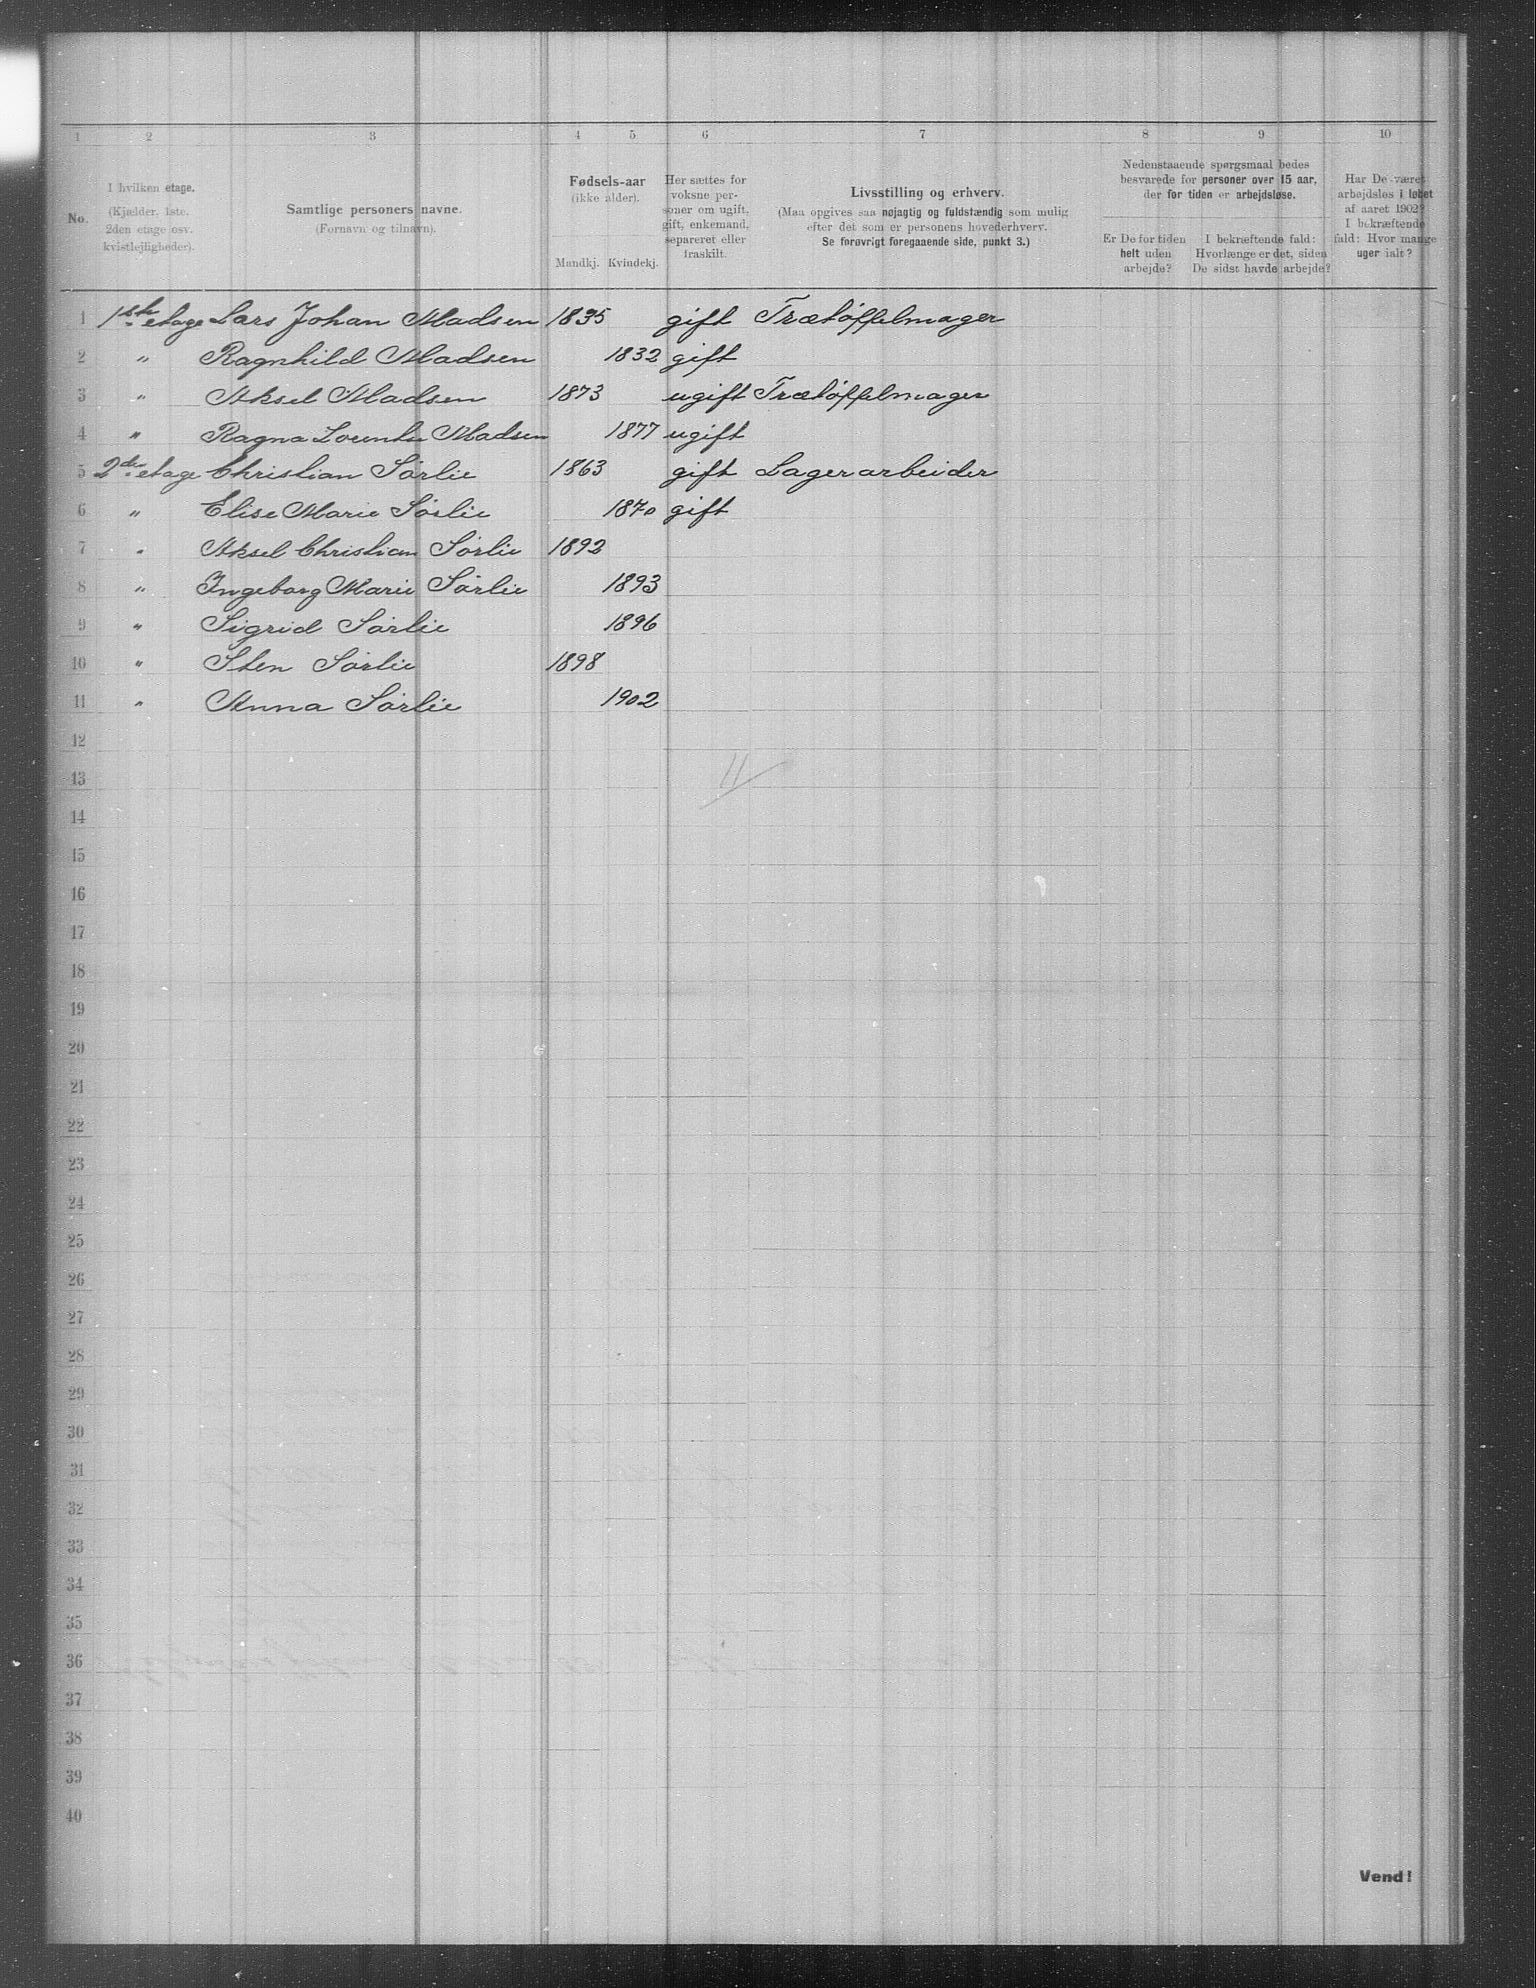 1 2 3 4 5 6 7 8 9 10
No.
I hvilken etage.
(Kjælder, 1ste,
2den etage osv.
kvistlejligheder).
Samtlige personers navne.
(Fornavn og tilnavn).
Fødsels-aar
(ikke alder).
Mandkj. Kvindekj.
Her sættes for
voksne per-
soner om ugift,
gift, enkemand,
separeret eller
fraskilt.
Livsstilling og erhverv.
(Maa opgives saa nøjagtig og fuldstændig som mulig
efter det som er personens hovederhverv.
Se forøvrigt foregaaende side, punkt 3.)
Nedenstaaende spørgsmaal bedes
besvarede for personer over 15 aar,
der for tiden er arbejdsløse.
Er De for tiden
helt uden
arbejde?
I bekræftende fald:
Hvorlænge er det, siden
De sidst havde arbejde?
Har De været
arbejdsløs i løbet
af aaret 1902?
I bekræftende
fald: Hvor mange
uger ialt?
1 1ste etage Lars Johan Madsen 1835 gift Trætøffelmager
2 " Ragnhild Madsen 1832 gift
3 " Aksel Madsen 1873 ugift Trætøffelmager
4 " Ragna Madsen 1877 ugift
5 2den etage Christian Sørlie 1863 gift Lagerarbeider
6 " Elise Marie Sørlie 1870 gift
7 " Aksel Christian Sørlie 1892
8 " Ingeborg Marie Sørlie 1893
9 " Sigrid Sørlie 1896
10 " Sten Sørlie 1898
11 " Anna Sørlie 1902
12
13 11
14
15
16
17
18
19
20
21
22
23
24
25
26
27
28
29
30
31
32
33
34
35
36
37
38
39
40
Vend!